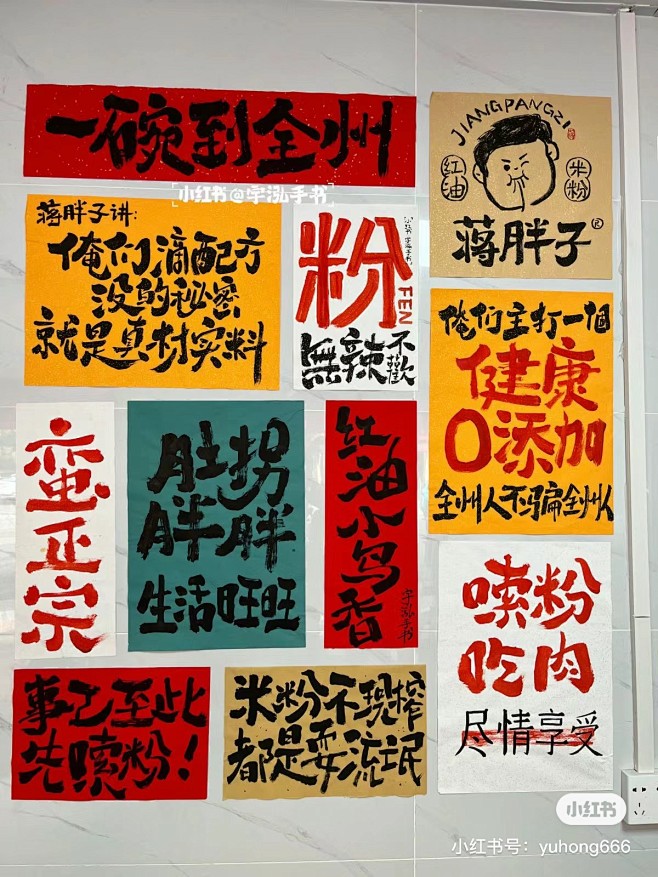 一碗到全州
小红书@宇泓手书
JIANGPANGZI
红油
米粉
蒋胖子
蒋胖子讲:
俺们滴配方
没的秘密
就是真材实料
粉
FEN
小红书宇泓手书
無辣不歡
俺们主打一個
健康
0添加
全州人不骗全州人
蛮正宗
肚拐
胖胖
生活旺旺
红油小鸟香
宇泓手书
嗦粉
吃肉
尽情享受
事已至此
先嗦粉!
米粉不现榨
都是耍流氓
小红书
小红书号: yuhong666